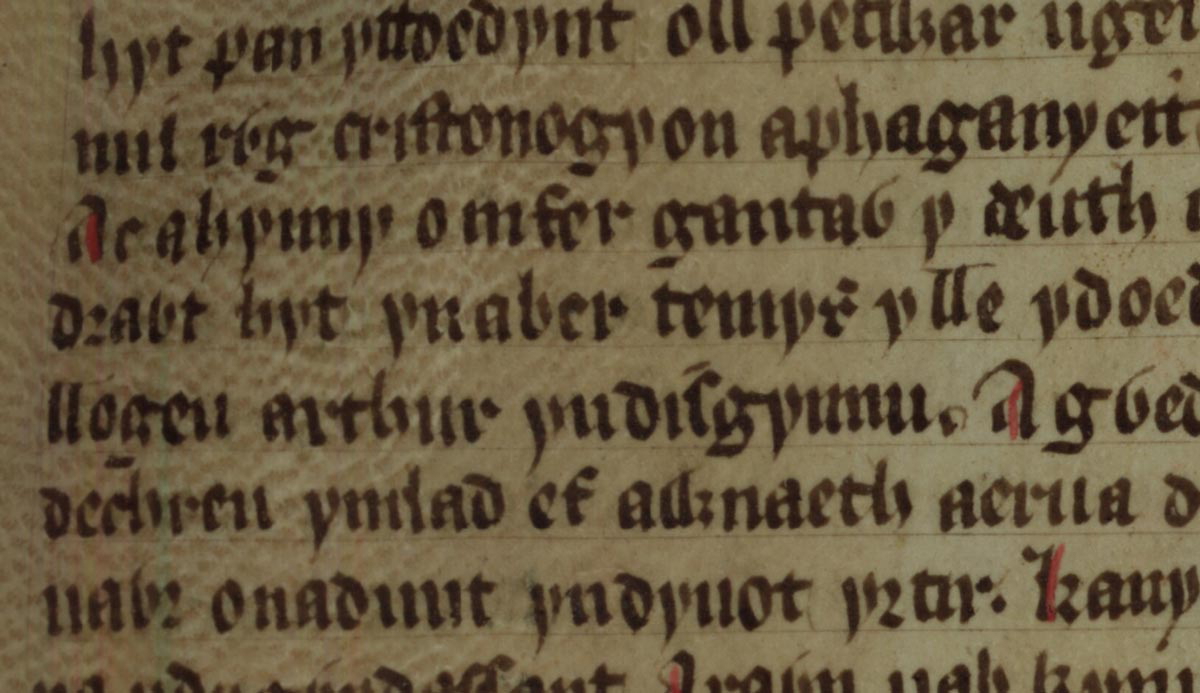 hyt pan yttoedynt oll petwar ugei
mil rỽg cristonogyon aphaganyeit
Ac ahynny o nifer gantaỽ y deuth
draỽt hyt ynaber temys ylle ydoed
llogeu arthur yndisgynnu. A gỽed
dechreu ymlad ef awnaeth aerua
uaỽr onadunt yndyuot yrtir. kany